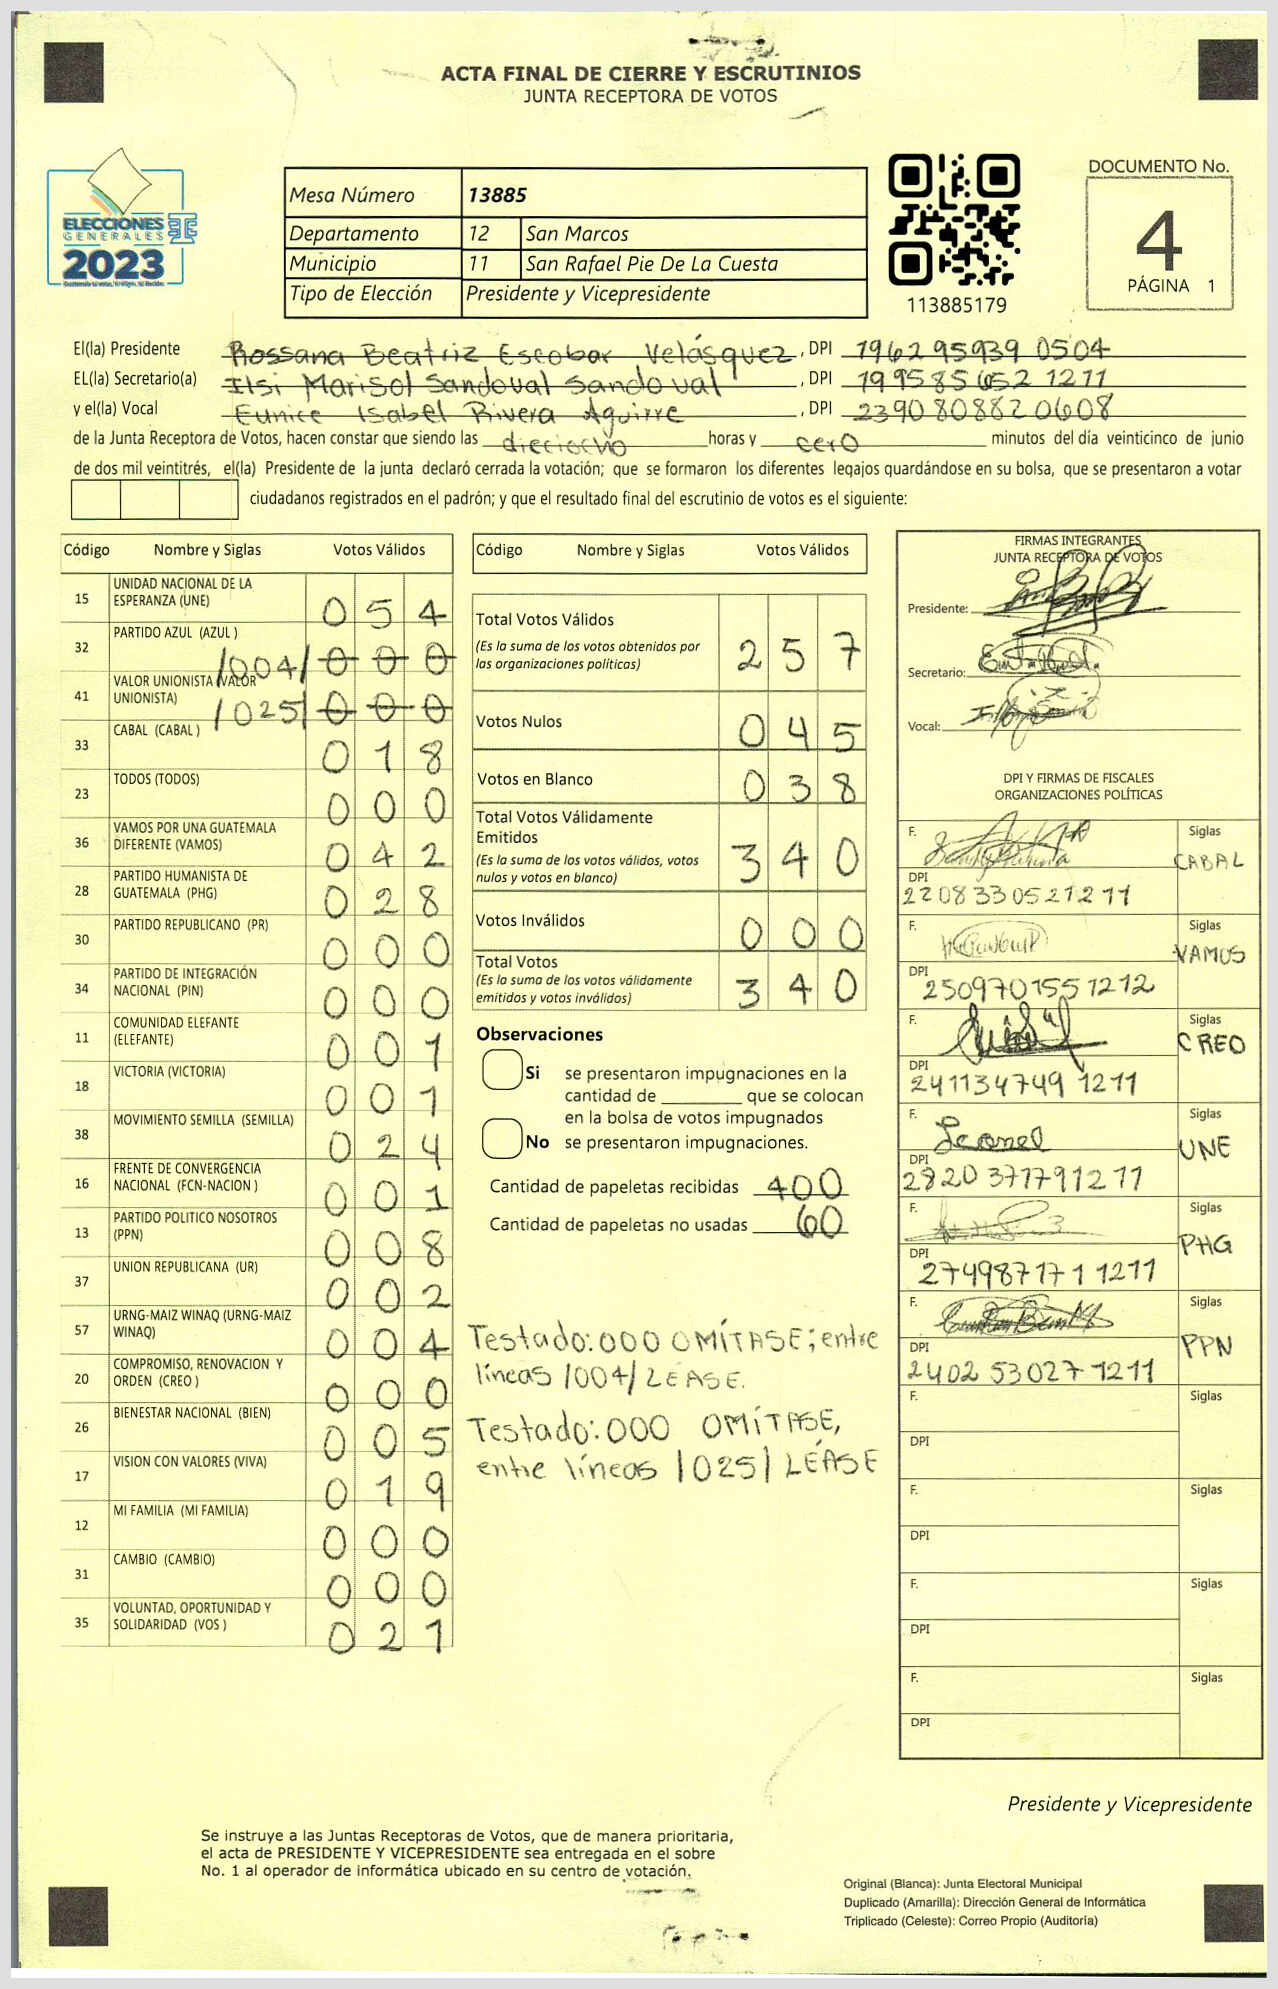 ACTA FINAL DE CIERRE Y ESCRUTINIOS
JUNTA RECEPTORA DE VOTOS
ELECCIONES
GENERALES
2023
Mesa Número 13885
Departamento 12 San Marcos
Municipio 11 San Rafael Pie De La Cuesta
Tipo de Elección Presidente y Vicepresidente
113885179
DOCUMENTO No.
4
PÁGINA 1
El(la) Presidente Rossana Beatriz Escobar Velásquez, DPI 196295939 0504
EL(la) Secretario(a) Ilsi Marisol Sandoval Sandoval, DPI 199585652 1211
y el(la) Vocal Eunice Isabel Rivera Aguirre, DPI 2390808820608
de la Junta Receptora de Votos, hacen constar que siendo las dieciocho horas y cero minutos del día veinticinco de junio
de dos mil veintitrés, el(la) Presidente de la junta declaró cerrada la votación; que se formaron los diferentes legajos quardándose en su bolsa, que se presentaron a votar
ciudadanos registrados en el padrón; y que el resultado final del escrutinio de votos es el siguiente:
Código Nombre y Siglas Votos Válidos
15 UNIDAD NACIONAL DE LA
ESPERANZA (UNE) 054
32 PARTIDO AZUL (AZUL )
/004/ 000
41 VALOR UNIONISTA (VALOR
UNIONISTA) /025/ 000
33 CABAL (CABAL ) 018
23 TODOS (TODOS) 000
36 VAMOS POR UNA GUATEMALA
DIFERENTE (VAMOS) 042
28 PARTIDO HUMANISTA DE
GUATEMALA (PHG) 028
30 PARTIDO REPUBLICANO (PR) 000
34 PARTIDO DE INTEGRACIÓN
NACIONAL (PIN) 000
11 COMUNIDAD ELEFANTE
(ELEFANTE) 001
18 VICTORIA (VICTORIA) 001
38 MOVIMIENTO SEMILLA (SEMILLA) 024
16 FRENTE DE CONVERGENCIA
NACIONAL (FCN-NACION ) 001
13 PARTIDO POLITICO NOSOTROS
(PPN) 008
37 UNION REPUBLICANA (UR) 002
57 URNG-MAIZ WINAQ (URNG-MAIZ
WINAQ) 004
20 COMPROMISO, RENOVACION Y
ORDEN (CREO ) 000
26 BIENESTAR NACIONAL (BIEN) 005
17 VISION CON VALORES (VIVA) 019
12 MI FAMILIA (MI FAMILIA) 000
31 CAMBIO (CAMBIO) 000
35 VOLUNTAD, OPORTUNIDAD Y
SOLIDARIDAD (VOS ) 021
Código Nombre y Siglas Votos Válidos
Total Votos Válidos
(Es la suma de los votos obtenidos por
las organizaciones políticas) 257
Votos Nulos 045
Votos en Blanco 038
Total Votos Válidamente
Emitidos
(Es la suma de los votos válidos, votos
nulos y votos en blanco) 340
Votos Inválidos 000
Total Votos
(Es la suma de los votos válidamente
emitidos y votos inválidos) 340
Observaciones
Si se presentaron impugnaciones en la
cantidad de ________ que se colocan
en la bolsa de votos impugnados
No se presentaron impugnaciones.
Cantidad de papeletas recibidas 400
Cantidad de papeletas no usadas 60
Testado: 000 OMÍTASE; entre
líneas /004/ LEASE.
Testado: 000 OMÍTASE,
entre líneas /025/ LÉASE
FIRMAS INTEGRANTES
JUNTA RECEPTORA DE VOTOS
Presidente:
Secretario:
Vocal:
DPI Y FIRMAS DE FISCALES
ORGANIZACIONES POLÍTICAS
F. Siglas
CABAL
DPI
2208330521211
F. Siglas
VAMOS
DPI
2509701551212
F. Siglas
CREO
DPI
241134749 1211
F. Leonel Siglas
UNE
DPI
2820371791211
F. Siglas
PHG
DPI
2749871711211
F. Siglas
PPN
DPI
2402530271211
F. Siglas
DPI
F. Siglas
DPI
F. Siglas
DPI
F. Siglas
DPI
Presidente y Vicepresidente
Se instruye a las Juntas Receptoras de Votos, que de manera prioritaria,
el acta de PRESIDENTE Y VICEPRESIDENTE sea entregada en el sobre
No. 1 al operador de informática ubicado en su centro de votación.
Original (Blanca): Junta Electoral Municipal
Duplicado (Amarilla): Dirección General de Informática
Triplicado (Celeste): Correo Propio (Auditoría)